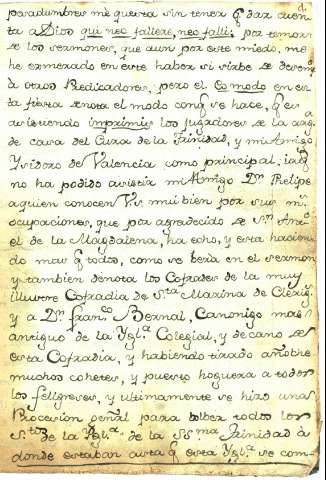 paradumbres me querra sin tener q̃ dar cuen
ta a Dios qui nec fallere, nec falli; por temor
de los sermones, que aun por este miedo, me
he esmerado en este haber si sirbe de
à otros Predicadores, pero el Comodo en es
ta fiesta denota el modo con q̃ se hace, q̃ es
asistiendo imprimis los jugadores de la arg.ª
de casa del Cura de la Trinidad, y mi Amigo
Ysidoro de Valencia como principal, ia q̃
no ha podido asistir mi Amigo Dⁿ Phelipe
a quien conocen Vs mui bien por sus mis
ocupaciones, que por agradecido de Sⁿ
el de la Magdalena, ha echo, y esta hacien
do mas q̃ todos, como se bería en el sermon
y tambien denota los Cofrades de la muy
illustre Cofradia de S.ta Marina de
y a Dⁿ Fran.co Bernal, Canonigo mas
antiguo de la Ygl.ª Colegial, y decano de
esta Cofradia, y habiendo tirado anoche
muchos cohetes, y puesto hoguera a todos
los feligreses, y ultimamente se hizo una
Procesion genãl para bolber todos los
S.tos de la Ygl.ª de la SS.ma Trinidad à
donde estaban asta q̃ esta Ygl.ª se com-